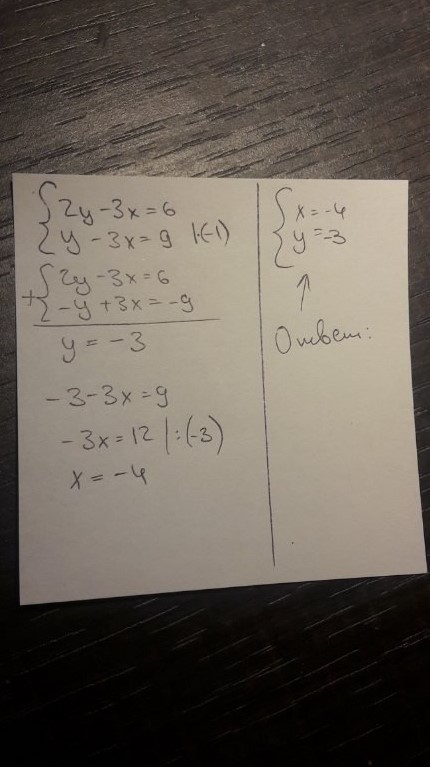 2y-3x=6
y-3x=9 |·(-1)
2y-3x=6
+
-y+3x=-9
y=-3
-3-3x=9
-3x=12 |:(-3)
x=-4
x=-4
y=-3
Ответ: